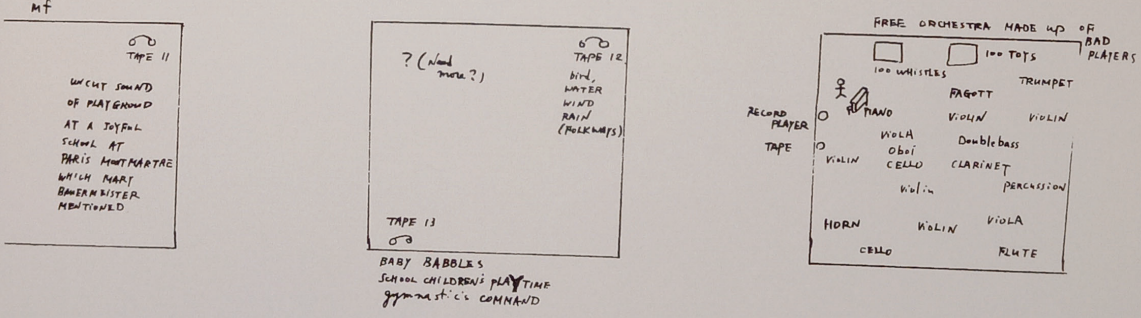 mf
TAPE 11
UNCUT SOUND
OF PLAYGROUND
AT A JOYFUL
SCHOOL AT
PARIS MONTMARTRE
WHICH MARY
BAUERMEISTER
MENTIONED
? (Need
more?)
TAPE 12
bird,
WATER
WIND
RAIN
(FOLKWAYS)
TAPE 13
BABY BABBLES
SCHOOL CHILDREN'S PLAYTIME
gymnastic's COMMAND
FREE ORCHESTRA MADE up OF
BAD
PLAYERS
100 WHISTLES
100 TOYS
TRUMPET
FAGOTT
PIANO
VIOLIN
VIOLIN
RECORD
PLAYER
VIOLA
Doublebass
TAPE
Oboi
VIOLIN
CELLO
CLARINET
Violin
PERCUSSION
HORN
VIOLIN
VIOLA
CELLO
FLUTE